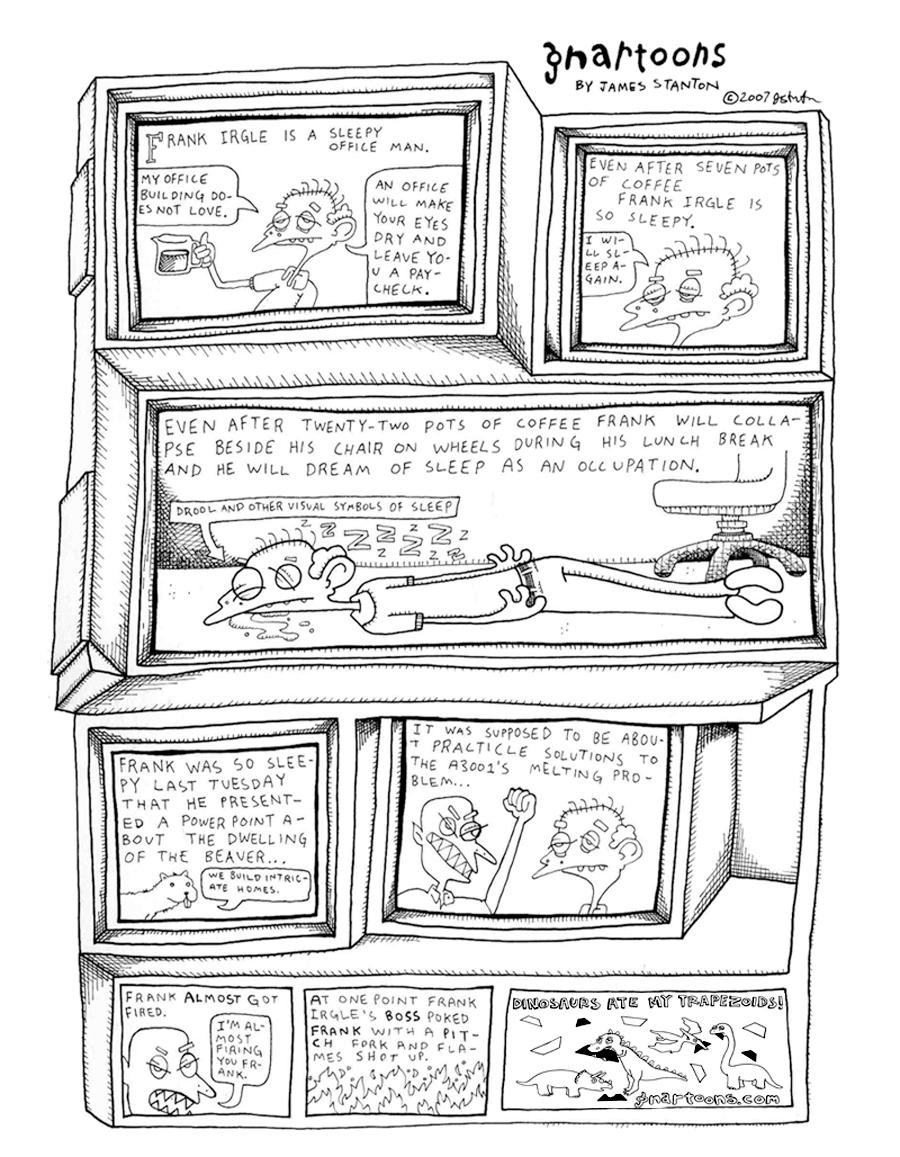 gnartoons
BY JAMES STANTON
©2007 jstntn
FRANK IRGLE IS A SLEEPY
OFFICE MAN.
MY OFFICE
BUILDING DO-
ES NOT LOVE.
AN OFFICE
WILL MAKE
YOUR EYES
DRY AND
LEAVE YO-
U A PAY-
CHECK.
EVEN AFTER SEVEN POTS
OF COFFEE
FRANK IRGLE IS
SO SLEEPY.
I WI-
LL SL-
EEP A-
GAIN.
EVEN AFTER TWENTY-TWO POTS OF COFFEE FRANK WILL COLLA-
PSE BESIDE HIS CHAIR ON WHEELS DURING HIS LUNCH BREAK
AND HE WILL DREAM OF SLEEP AS AN OCCUPATION.
DROOL AND OTHER VISUAL SYMBOLS OF SLEEP
Z Z Z Z Z Z Z Z Z Z
FRANK WAS SO SLEE-
PY LAST TUESDAY
THAT HE PRESENT-
ED A POWER POINT A-
BOUT THE DWELLING
OF THE BEAVER...
WE BUILD INTRIC-
ATE HOMES.
IT WAS SUPPOSED TO BE ABOU-
T PRACTICLE SOLUTIONS TO
THE A3001'S MELTING PRO-
BLEM...
FRANK ALMOST GOT
FIRED.
I'M AL-
MOST
FIRING
YOU FR-
ANK.
AT ONE POINT FRANK
IRGLE'S BOSS POKED
FRANK WITH A PIT-
CH FORK AND FLA-
MES SHOT UP.
DINOSAURS ATE MY TRAPEZOIDS!
gnartoons.com